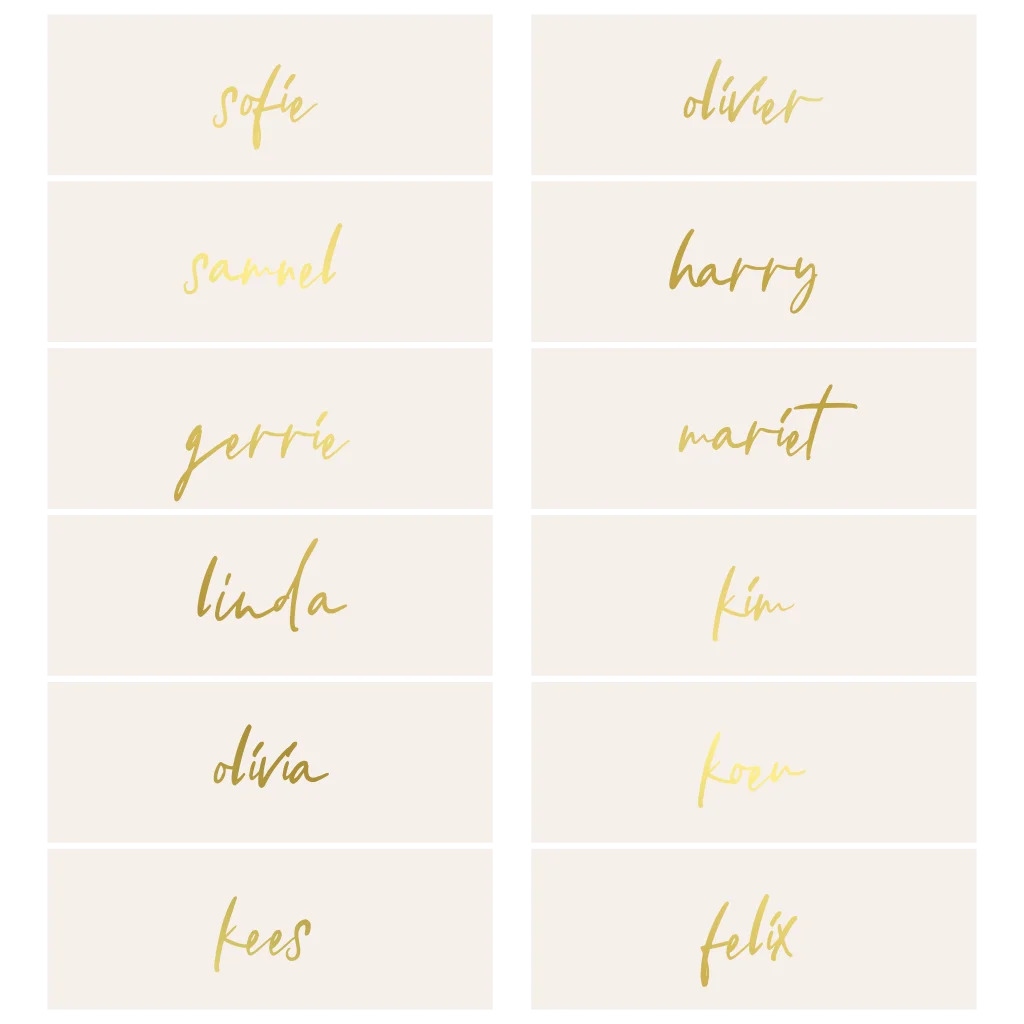 sofie
olivier
samuel
harry
gerrie
mariet
linda
kim
olivia
koen
kees
felix